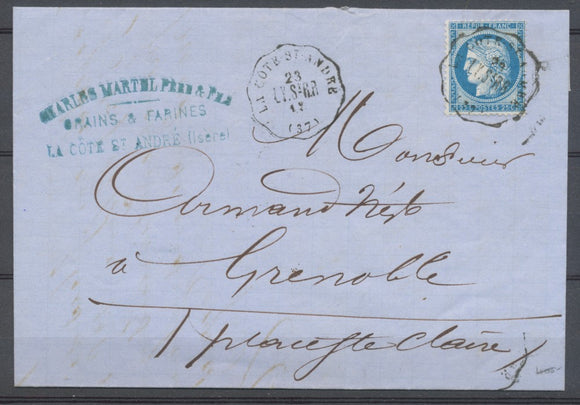 CHARLES MARTEL PÈRE & FILS
GRAINS & FARINES
LA CÔTE ST ANDRÉ (Isère)
LA CÔTE ST ANDRÉ
23
LY.St-RB
(37)
REPUB. FRANC.
25c POSTES 25c
Monsieur
Armand
à
Grenoble
place Ste Claire